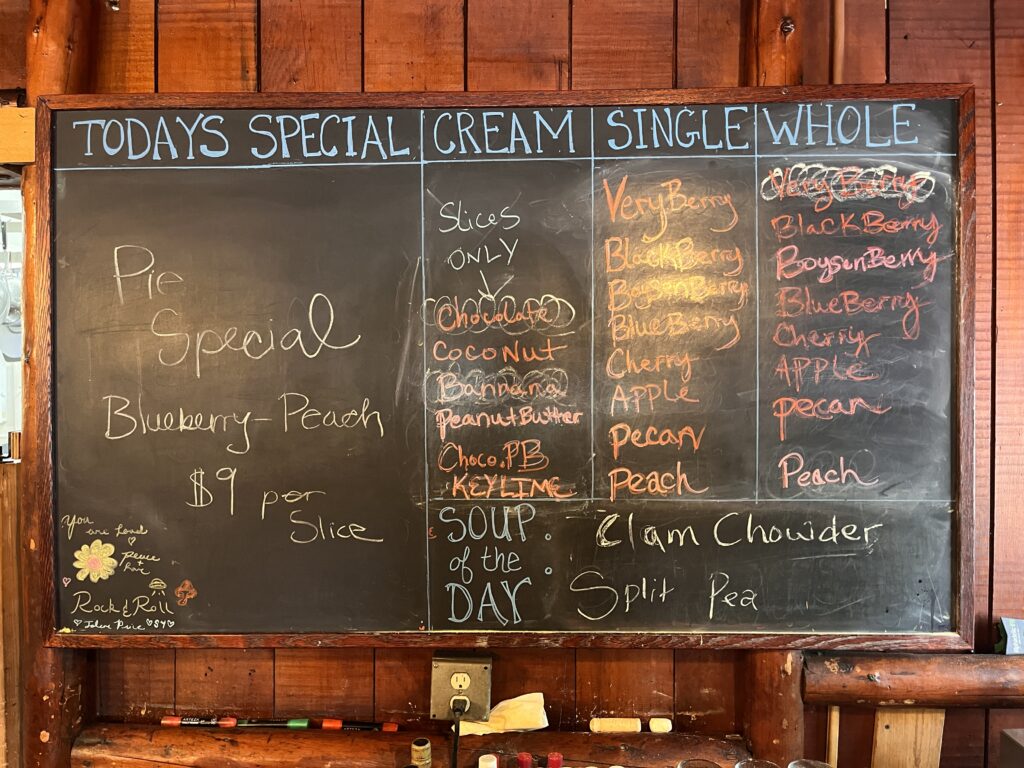 TODAYS SPECIAL
Pie
Special
Blueberry-Peach
$9 per
Slice
You
are Loved
Peace
+
Rock & Roll
CREAM
Slices
ONLY
Chocolate
COCONUT
Bannana
Peanut Butter
Choco.PB
KEYLIME
SINGLE
VeryBerry
BlackBerry
BoysenBerry
BlueBerry
Cherry
APPLE
pecan
Peach
WHOLE
VeryBerry
BlackBerry
BoysenBerry
BlueBerry
Cherry
APPLE
pecan
Peach
SOUP
of the
DAY
Clam Chowder
Split Pea